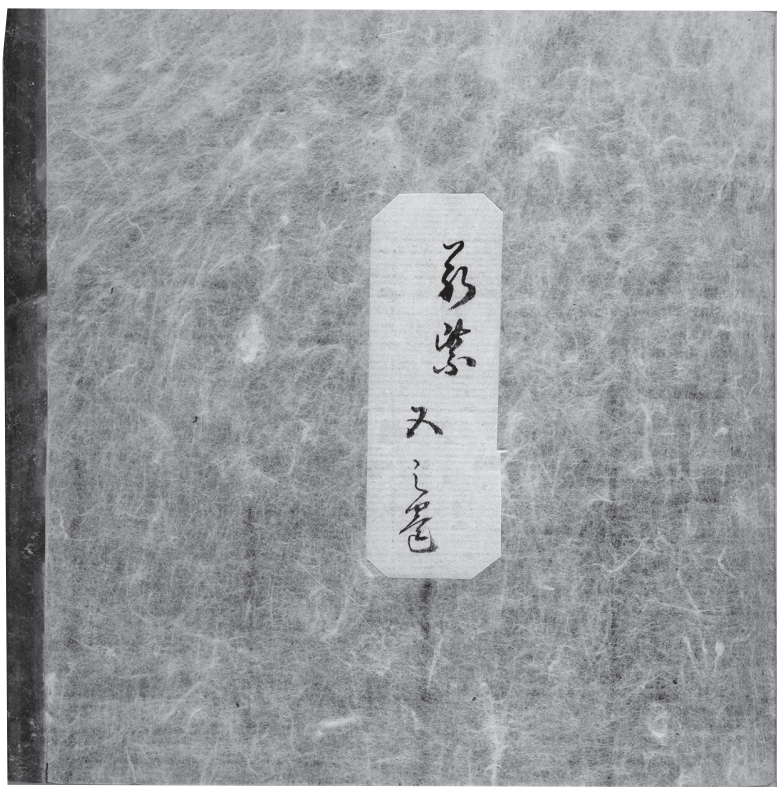 若紫
五之巻